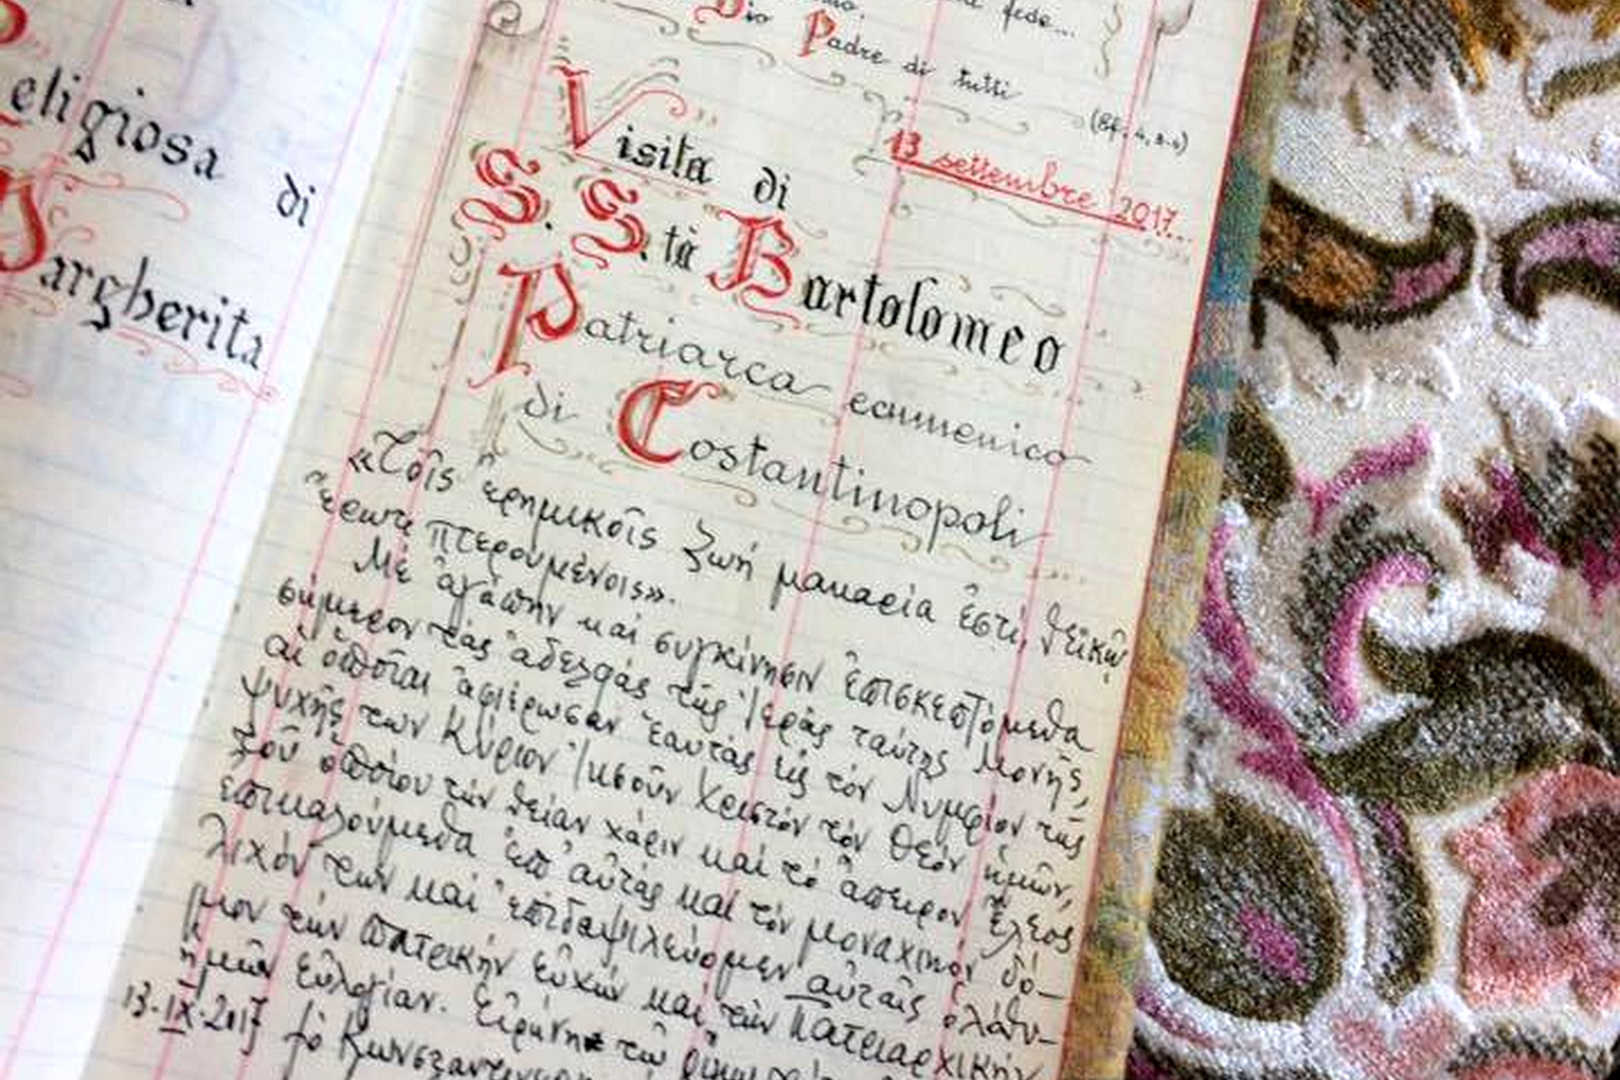 eligiosa di
Margherita
fede...
Dio Padre di tutti
13 settembre 2017...
Visita di
S. S.tà Bartolomeo
Patriarca ecumenico
di Costantinopoli
«Τοῖς ἐρημικοῖς ζωή μακαρία ἐστί, θεϊκῷ
ἔρωτι πτερουμένοις».
Μέ ἀγάπην καί συγκίνησιν ἐπισκεπτόμεθα
σήμερον τάς ἀδελφάς τῆς Ἱερᾶς ταύτης Μονῆς,
αἱ ὁποῖαι ἀφιέρωσαν ἑαυτάς εἰς τόν Νυμφίον τῆς
ψυχῆς των Κύριον Ἰησοῦν Χριστόν τόν Θεόν ἡμῶν,
τοῦ ὁποίου τήν θείαν χάριν καί τό ἄπειρον ἔλεος
ἐπικαλούμεθα ἐπ' αὐτάς καί τόν μοναχικόν δό-
λιχόν των καί ἐπιδαψιλεύομεν αὐταῖς ὁλόθυ-
μον τήν πατρικήν εὐχήν καί τήν Πατριαρχικήν
ἡμῶν εὐλογίαν. Εἰρήνη τῷ
13-IX-2017 ὁ